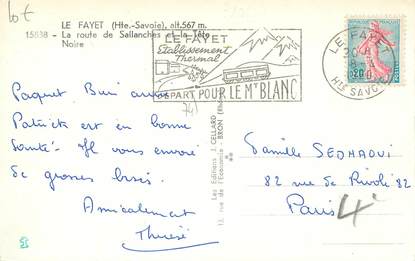 lot
LE FAYET (Hte.-Savoie), alt. 567 m.
15838 - La route de Sallanches et la Tête
Noire
LE FAYET
Etablissement
Thermal
DÉPART POUR LE MT BLANC
LE FAYET
HTE SAVOIE
0,20
74
Paquet Bien arrivé
Patrick est en bonne
Santé - Il vous envoie
de grosses bises.
Amicalement
Thérèse
Les Editions J. CELLARD
13, rue de l'Economie BRON (Rhône)
Famille SEDHAOUI
82 rue de Rivoli 82
Paris 4